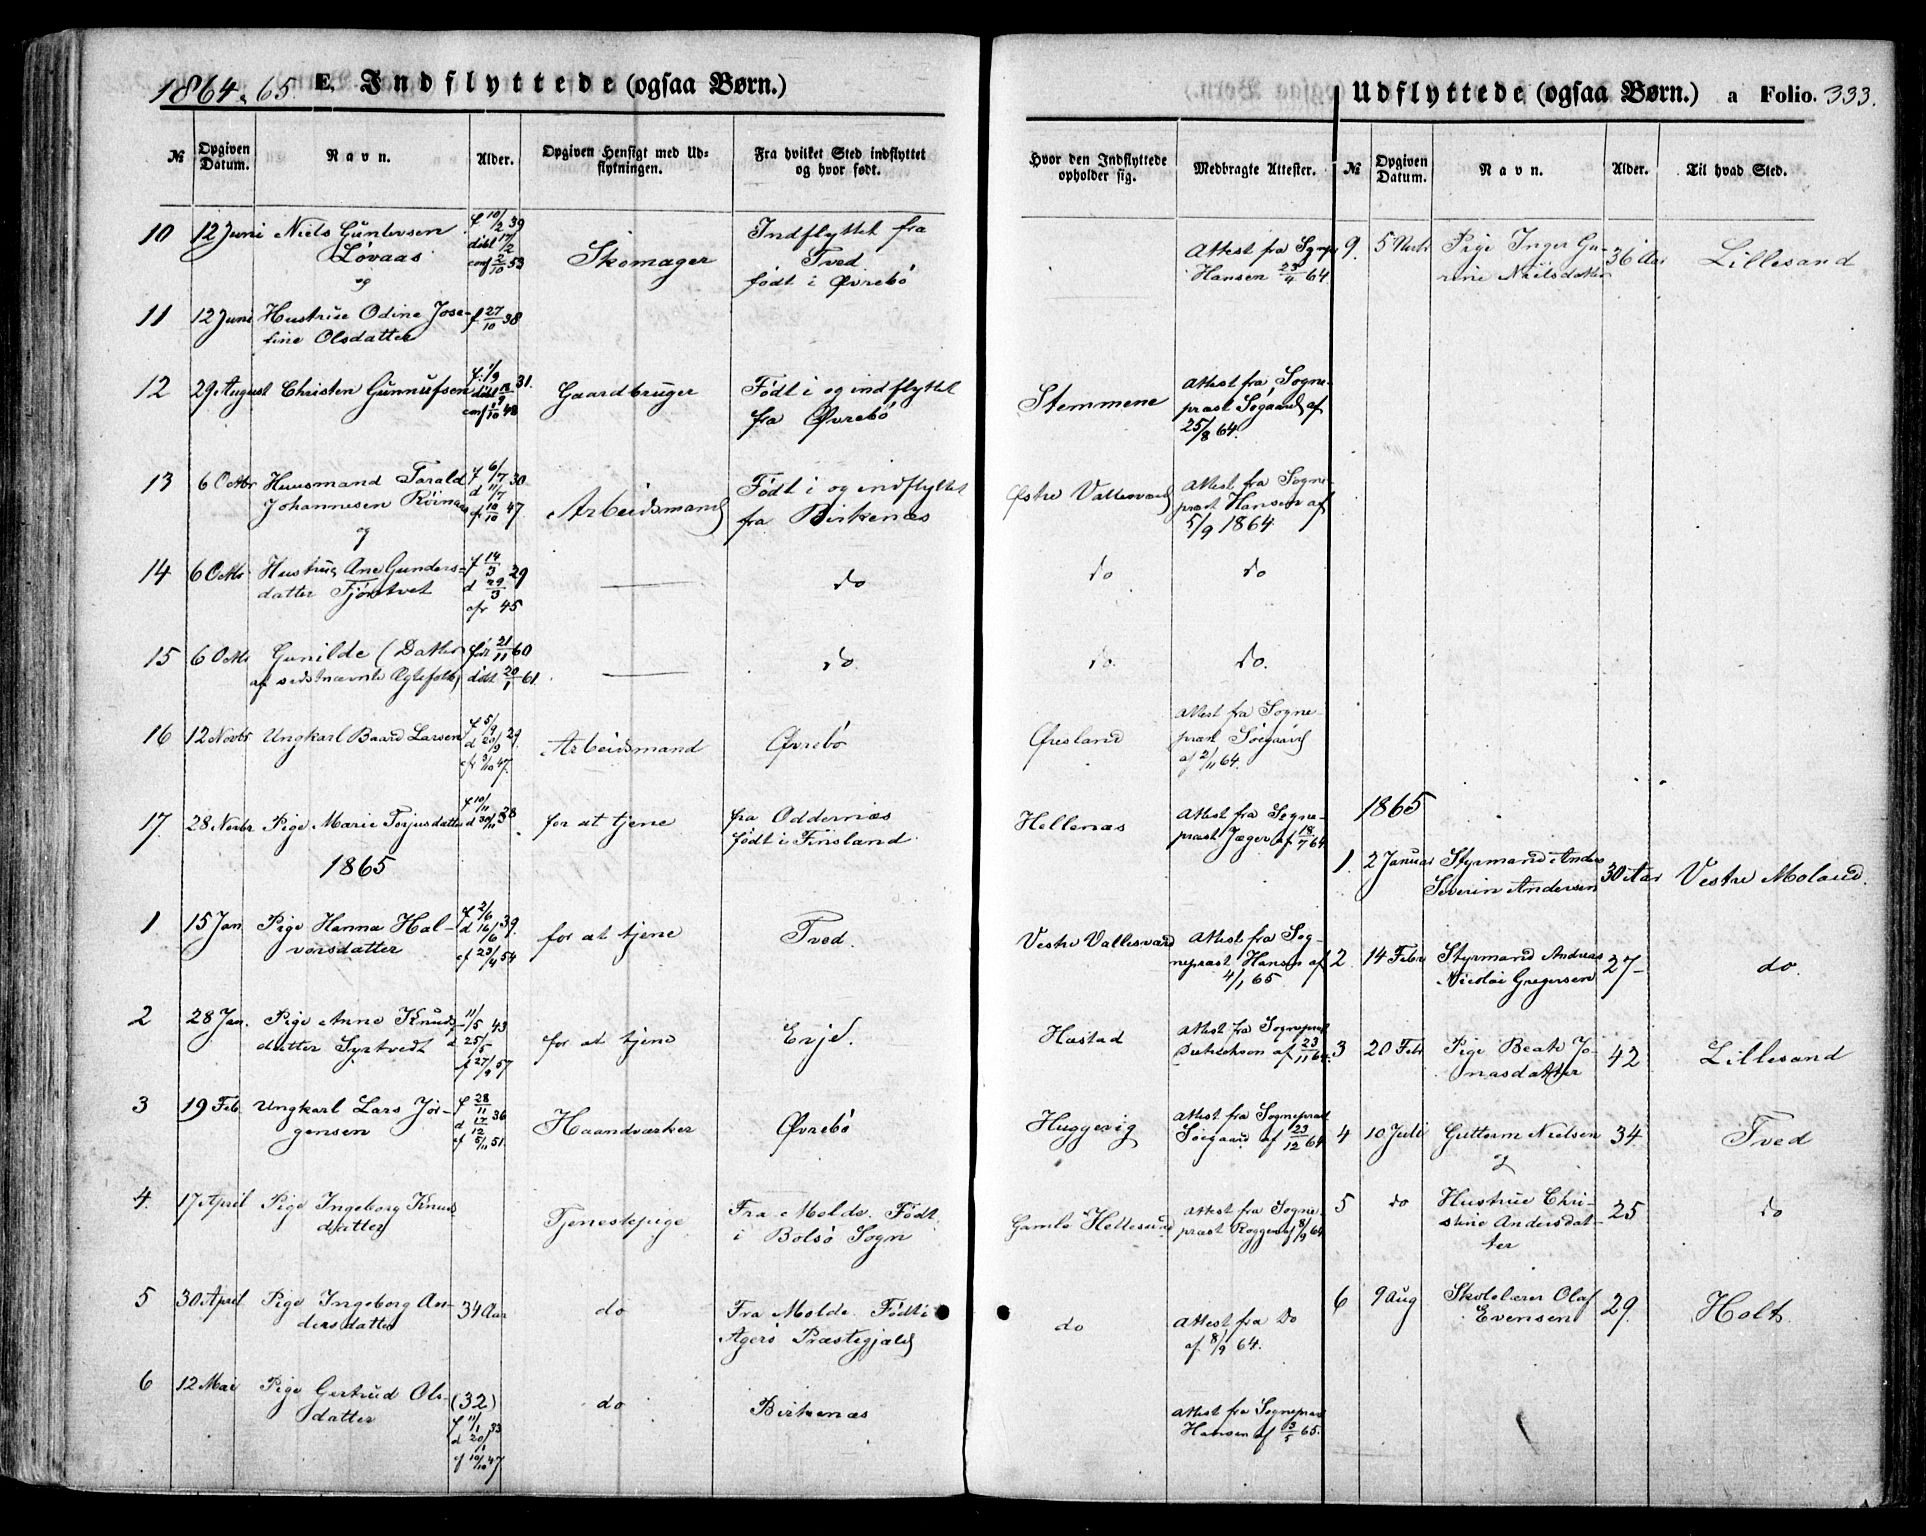 1864-65. E. Indflyttede (ogsaa Børn.)
№ Opgiven Datum. Navn. Alder. Opgiven Hensigt med Udflytningen. Fra hvilket Sted indflyttet og hvor født.
10 12 Juni Niels Guntersen f 10/2 39 Skomager Indflyttet fra
Løvaas døbt 17/2 Tved
og conf 2/10 53 født i Øvrebø
11 12 Juni Hustrue Odine Jose- f 27/10 38
fine Olsdatter
12 29 August Christen Gunnufsen f. 1/9 31. Gaardbruger Født i og indflyttet
conf 1/10 48 fra Øvrebø
13 6 Octbr Huusmand Tarald f 6/7 30 Arbeidsmand Født i og indflyttet
Johannesen Røinaas d 11/7 fra Birkenæs
og cf 10/10 47
14 6 Octbr Hustrug Ane Gunders- f 14/3 29 — do
datter Tjøntvet d 29/3
cfr 45
15 6 Octbr Gunilde (Datter før 21/11 60 — do.
af sidstnævnte Ægtefolk) døbt 20/1 61.
16 12 Novbr Ungkarl Baard Larsen f 5/9 29. Arbeidsmand Øvrebø
d 20/9
cfr 3/10 47.
17 28 Novbr Pige Marie Torjusdatter f 10/11 38 for at tjene fra Oddernæs
d 30/11 født i Finsland
1865
1. 15 Jan Pige Hanna Hal- f 2/6 39. for at tjene Tved.
vorsdatter d 16/6
cf 23/4 54
2 28 Jan. Pige Anne Knuds- 11/5 43 for at tjene Evje.
datter Syrtvedt d 25/5
cf 27/9 57
3 19 Feb. Ungkarl Lars Jør- f 28/11 36 Haandværker Øvrebø
gensen d 17/12
cf 5/11 51.
4. 17 April Pige Ingeborg Knuds- Tjenestepige Fra Molde. Født
datter i Bolsø Sogn
5 30 April Pige Ingeborg An- 34 Aar do Fra Molde. Født i
dersdatter Agerø Præstegjæld
6 12 Mai Pige Gertrud Ols- (32) do Birkenæs
datter f 11/1 33
d 20/1
cf 10/10 47
Udflyttede (ogsaa Børn.) a Folio. 333.
Hvor den Indflyttede opholder sig. Medbragte Attester. № Opgiven Datum. Navn. Alder. Til hvad Sted.
Attest fra Sognpr
Hansen 23/4 64
Stemmene Attest fra Sogne-
præst Søgaard af
25/8 64.
Østre Vallesværd Attest fra Sogne-
præst Hansen af
5/9 1864
do do
do. do.
Øresland Attest fra Sogne-
præst Søegaard
af 2/11 64.
Hellenæs Attest fra Sogne-
præst Jæger af 18/7 64
Vestre Vallesværd Attest fra Sog-
nepræst Hansen af
4/1 65
Hæstad Attest fra Sognepræst
Diderichson af 23/11 64
Huggevig Attest fra Sognepræst
Søegaard af 23/12 64
Gamle Hellesund Attest fra Sogne-
præst Roggen af 8/9 64
do Attest fra Do
af 8/9 64.
Attest fra Sognepræst
Hansen af 13/5 65.
9. 5 Novbr Pige Inger Gu- 36 Aar Lillesand
rine Nielsdatter
1865
1. 2 Januar Styrmand Anders 30 Aar Vestre Moland.
Severin Andersen
2 14 Febr Styrmand Andreas 27- do.
Nicolai Gregersen
3 20 Febr Pige Beate Jo- 42 Lillesand
nasdatter
4 10 Juli Guttorm Nielsen 34. Tved
og
5 do Hustrue Chri- 25 do
stine Andersdat-
ter
6 9 Aug Skolelærer Olaf 29. Holt.
Evensen